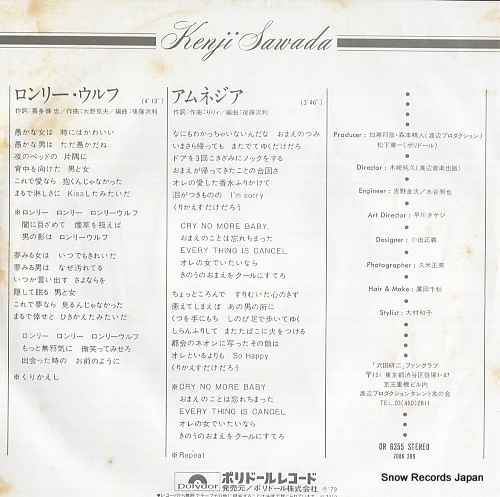 Kenji Sawada
ロンリー・ウルフ (4'13")
作詞：喜多條 忠／作曲：大野克夫／編曲：後藤次利
愚かな女は 時にはかわいい
愚かな男は ただ愚かだね
夜のベッドの 片隅に
背中を向けた 男と女
これで愛なら 抱くんじゃなかった
まるで淋しさに Kissしたみたいだ
※ロンリー ロンリー ロンリーウルフ
闇に目ざめて 煙草を吸えば
男の影は ロンリーウルフ
夢みる女は いつでもきれいだ
夢みる男は なぜ汚れてる
いつか言い出す さよならを
隠して眠る 男と女
これで夢なら 見るんじゃなかった
まるで倖せと ひきかえたみたいだ
ロンリー ロンリー ロンリーウルフ
もっと無邪気に 微笑ってみせろ
出会った時の お前のように
※くりかえし
アムネジア (3'46")
作詞・作曲：りりィ／編曲：後藤次利
なにもわかっちゃいないんだな おまえのつみ
いまさら帰っても またでてゆくだけだろ
ドアを3回こきざみにノックをする
おまえが帰ってきたことの合図さ
オレの愛した香水ふりかけて
泪がつきものの I'm sorry
くりかえすだけだろう
CRY NO MORE BABY,
おまえのことは忘れちまった
EVERY THING IS CANCEL
オレの女でいたいなら
きのうのおまえをクールにすてろ
ちょっところんで すりむいた心のきず
癒えてしまえば あの男の所に
くつを手にもち しのび足で歩いてゆく
しらんふりして またたばこに火をつける
都会のネオンに写ったその顔は
オレといるよりも So Happy
くりかえすだけだろう
※CRY NO MORE BABY
おまえのことは忘れちまった
EVERY THING IS CANCEL
オレの女でいたいなら
きのうのおまえをクールにすてろ
※Repeat
Producer：加瀬邦彦・森本精人(渡辺プロダクション)
松下章一(ポリドール)
Director：木崎純久(渡辺音楽出版)
Engineer：吉野金次／水谷照也
Art Director：早川タケジ
Designer：小出正義
Photographer：久米正美
Hair & Make：廣田千秋
Stylist：大村和子
「沢田研二」ファンクラブ
〒151 東京都渋谷区佐塚1-47
京王重機ビル内
渡辺プロダクションタレント友の会
TEL.03(460)2811
DR 6355 STEREO
7006 389
Polydor ポリドールレコード
発売元／ポリドール株式会社 Ⓟ'79
Snow Records Japan